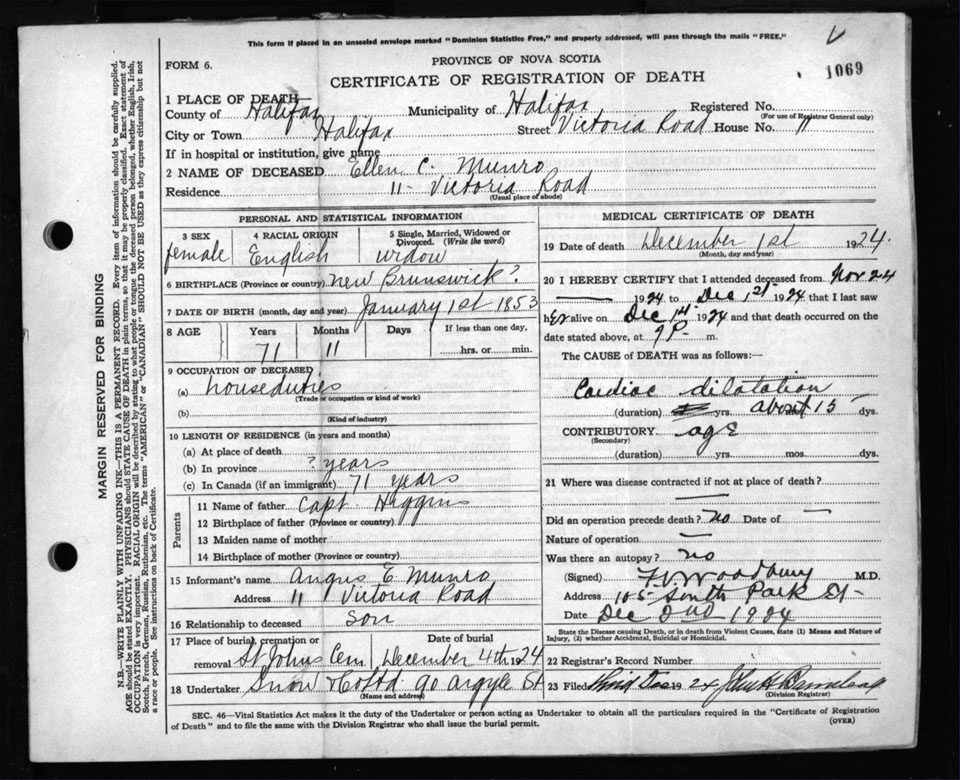 This form if placed in an unsealed envelope marked "Dominion Statistics Free," and properly addressed, will pass through the mails "FREE."
FORM 6.
PROVINCE OF NOVA SCOTIA
CERTIFICATE OF REGISTRATION OF DEATH
1069
1 PLACE OF DEATH—
County of Halifax Municipality of Halifax Registered No.
(For use of Registrar General only)
City or Town Halifax Street Victoria Road House No. 11
If in hospital or institution, give name
2 NAME OF DECEASED Ellen C. Munro
Residence 11 Victoria Road
(Usual place of abode)
PERSONAL AND STATISTICAL INFORMATION
3 SEX 4 RACIAL ORIGIN 5 Single, Married, Widowed or Divorced. (Write the word)
female English widow
6 BIRTHPLACE (Province or country) new Brunswick?
7 DATE OF BIRTH (month, day and year) January 1st 1853
8 AGE Years Months Days If less than one day,
71 11 hrs. or min.
9 OCCUPATION OF DECEASED
(a) houseduties
(Trade or occupation or kind of work)
(b)
(Kind of industry)
10 LENGTH OF RESIDENCE (in years and months)
(a) At place of death
(b) In province ? years
(c) In Canada (if an immigrant) 71 years
Parents
11 Name of father Capt Higgins
12 Birthplace of father (Province or country)
13 Maiden name of mother
14 Birthplace of mother (Province or country)
15 Informant's name Angus E Munro
Address 11 Victoria Road
16 Relationship to deceased Son
17 Place of burial, cremation or removal Date of burial
St Johns Cem December 4th 1924
18 Undertaker Snow & Co Ltd 90 Argyle St
(Name and address)
MEDICAL CERTIFICATE OF DEATH
19 Date of death December 1st 1924.
(Month, day and year)
20 I HEREBY CERTIFY that I attended deceased from Nov 24
— 1924 to Dec 1st 1924 that I last saw
her alive on Dec 1st 1924 and that death occurred on the
date stated above, at 9 P m.
The CAUSE of DEATH was as follows:
Cardiac dilatation
(duration) yrs. about 15 dys.
CONTRIBUTORY age
(Secondary)
(duration) yrs. mos. dys.
21 Where was disease contracted if not at place of death?
—
Did an operation precede death? no Date of —
Nature of operation —
Was there an autopsy? no
(Signed) F V Woodbury M.D.
Address 105 South Park St
Date Dec 2nd 1924
State the Disease causing Death, or in death from Violent Causes, state (1) Means and Nature of Injury, (2) whether Accidental, Suicidal or Homicidal.
22 Registrar's Record Number
23 Filed Third Dec 1924
(Division Registrar)
SEC. 46—Vital Statistics Act makes it the duty of the Undertaker or person acting as Undertaker to obtain all the particulars required in the "Certificate of Registration
of Death" and to file the same with the Division Registrar who shall issue the burial permit.
(OVER)
MARGIN RESERVED FOR BINDING
N.B.—WRITE PLAINLY WITH UNFADING INK—THIS IS A PERMANENT RECORD. Every item of information should be carefully supplied.
AGE should be stated EXACTLY. PHYSICIANS should STATE CAUSE OF DEATH in plain terms, so that it may be properly classified. Exact statement of
OCCUPATION is very important. RACIAL ORIGIN will be described by stating to what people or tongue the deceased person belonged, whether English, Irish,
Scotch, French, German, Russian, Ruthenian, etc. The terms "AMERICAN" or "CANADIAN" SHOULD NOT BE USED as they express citizenship but not
a race or people. See instructions on back of Certificate.